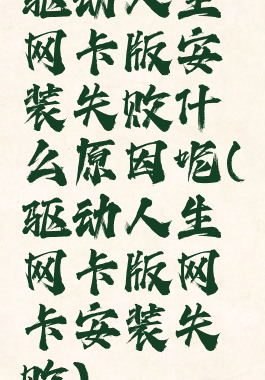 驱动人生
网卡版安
装失败什
么原因呢(
驱动人生
网卡版网
卡安装失
败)